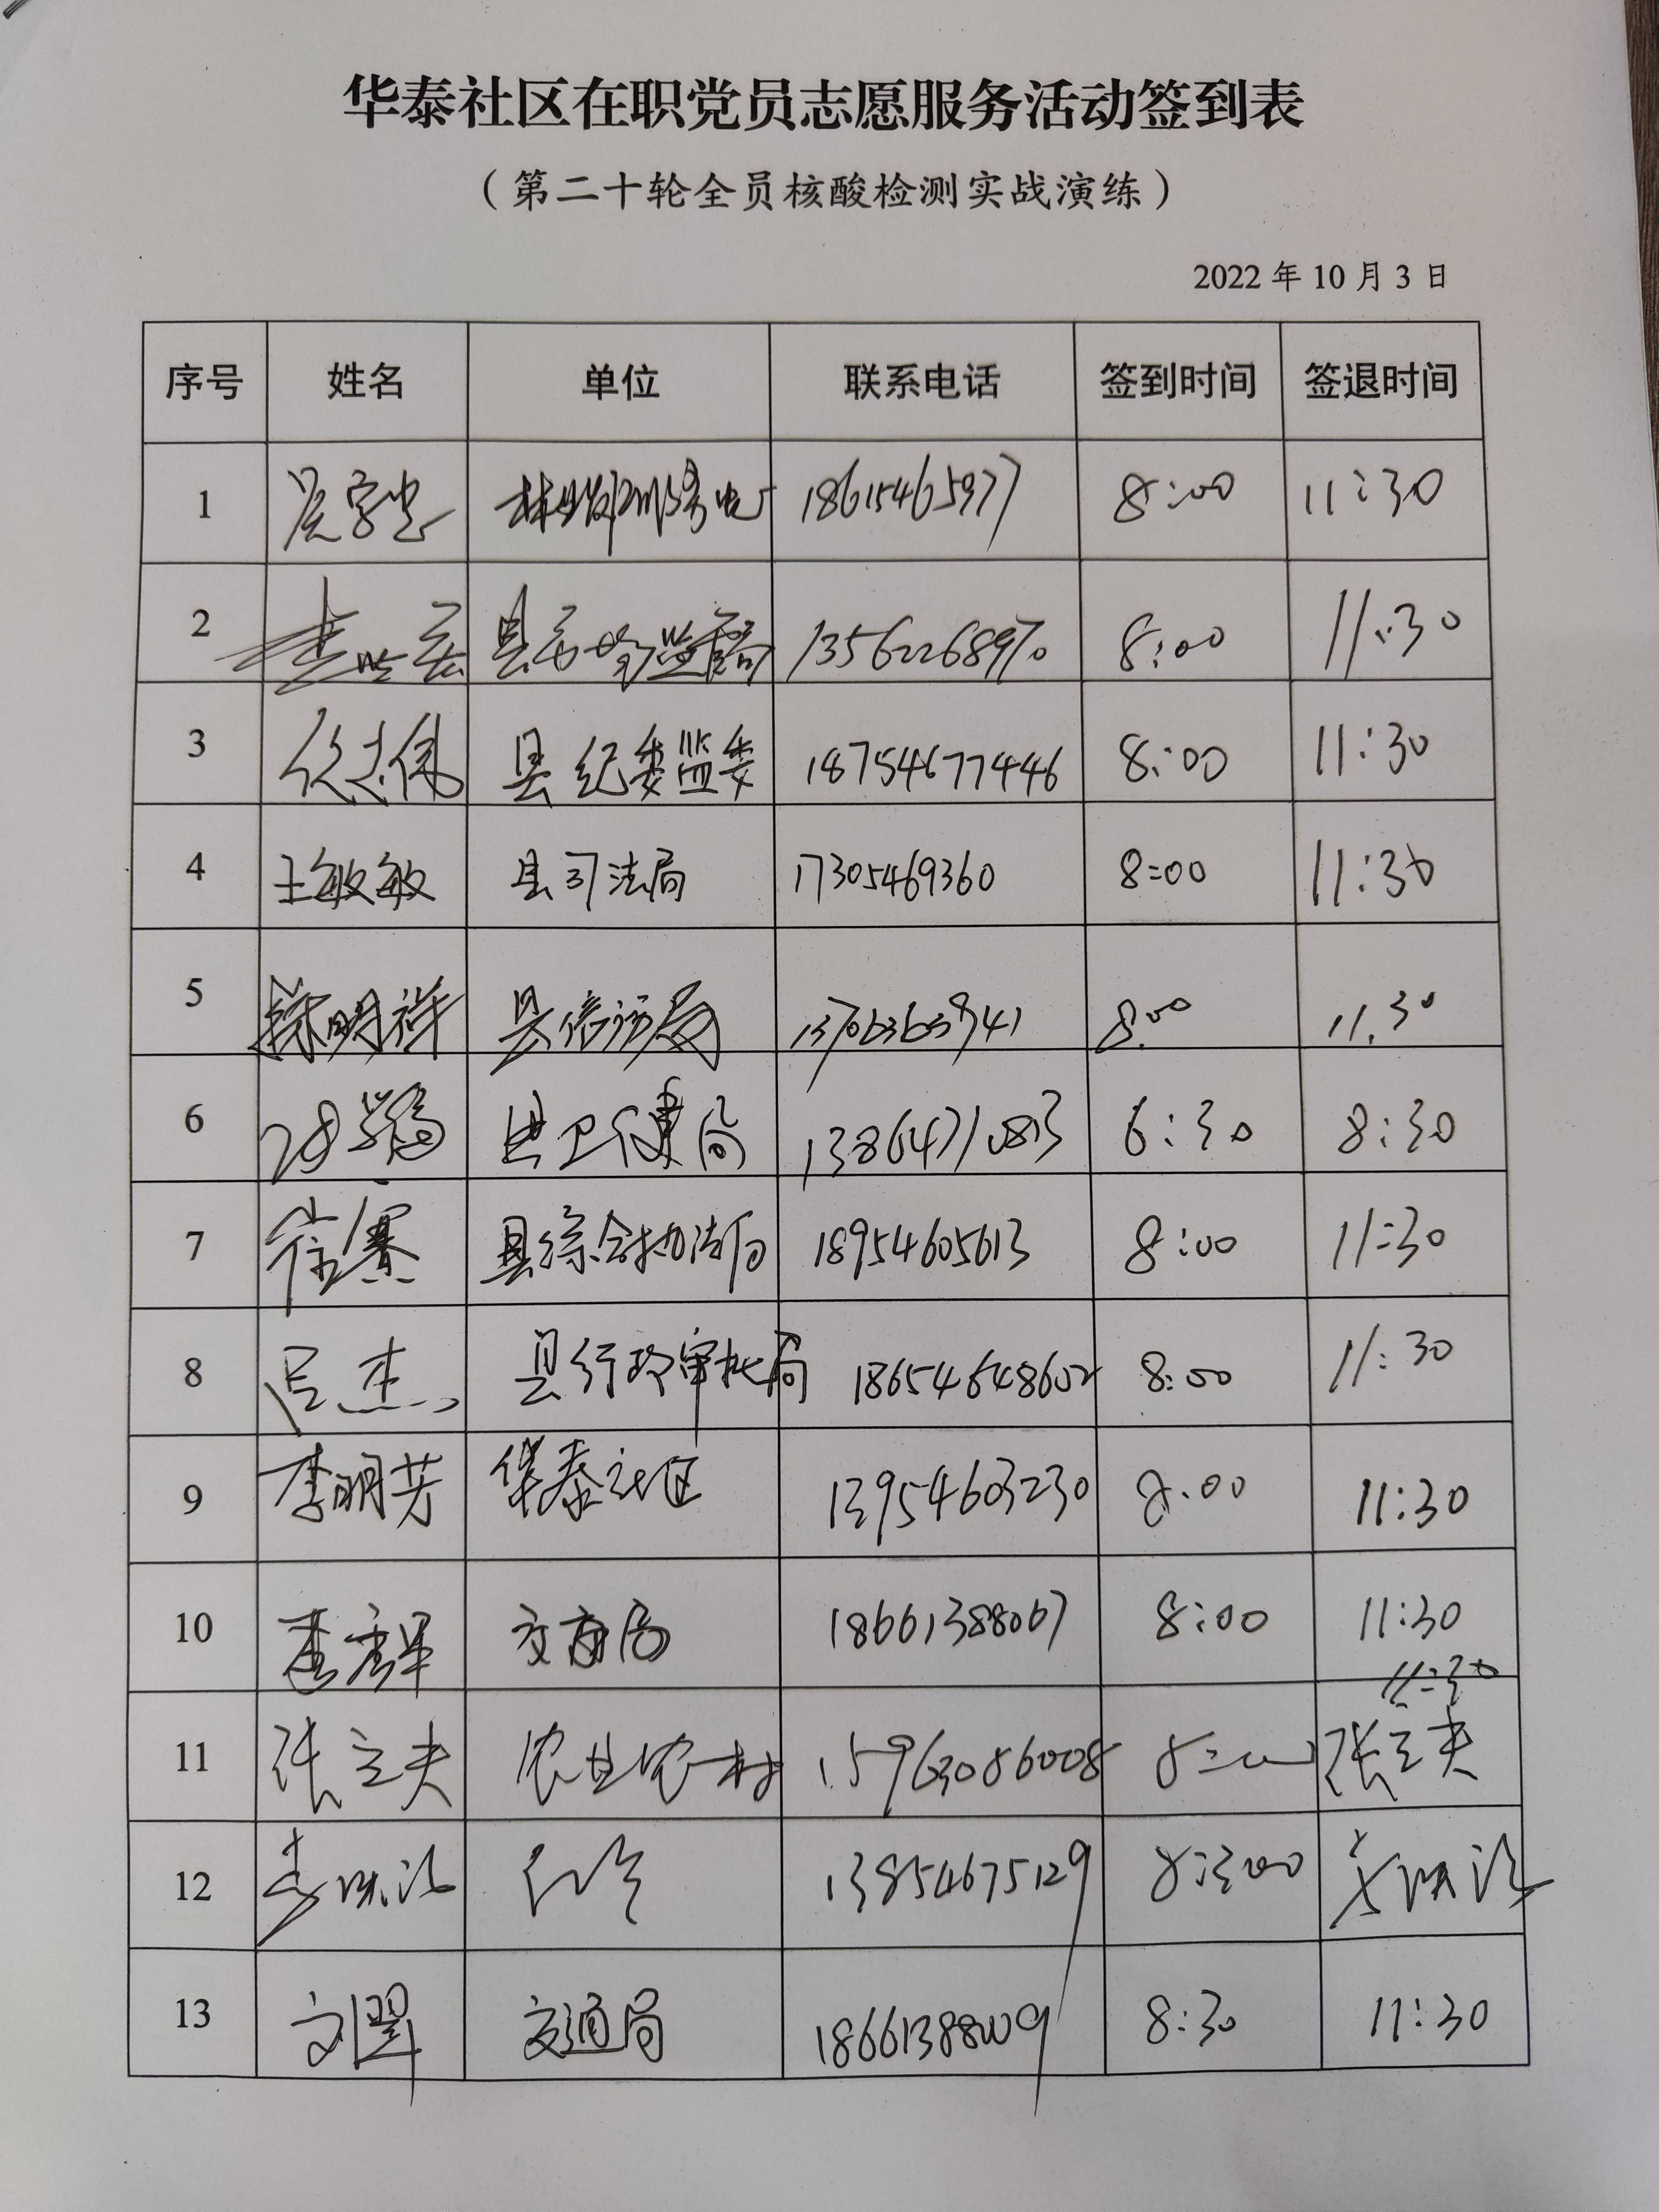 华泰社区在职党员志愿服务活动签到表
（第二十轮全员核酸检测实战演练）
2022 年 10 月 3 日
序号 姓名 单位 联系电话 签到时间 签退时间
1 18615465977 8:00 11:30
2 县市场监管局 13562268970 8:00 11:30
3 县纪委监委 18754677446 8:00 11:30
4 王敏敏 县司法局 17305469360 8:00 11:30
5 明祥 县信访局 8:00 11:30
6 县卫健局 6:30 8:30
7 县综合执法局 18954605613 8:00 11:30
8 吕杰 县行政审批局 18654648602 8:00 11:30
9 李明芳 华泰社区 13954603230 8:00 11:30
10 局 18661388067 8:00 11:30
11:30
11 张立夫 农业农村 15963086008 8:00 张立夫
12 13854675129
13 交通局 18661388009 8:30 11:30